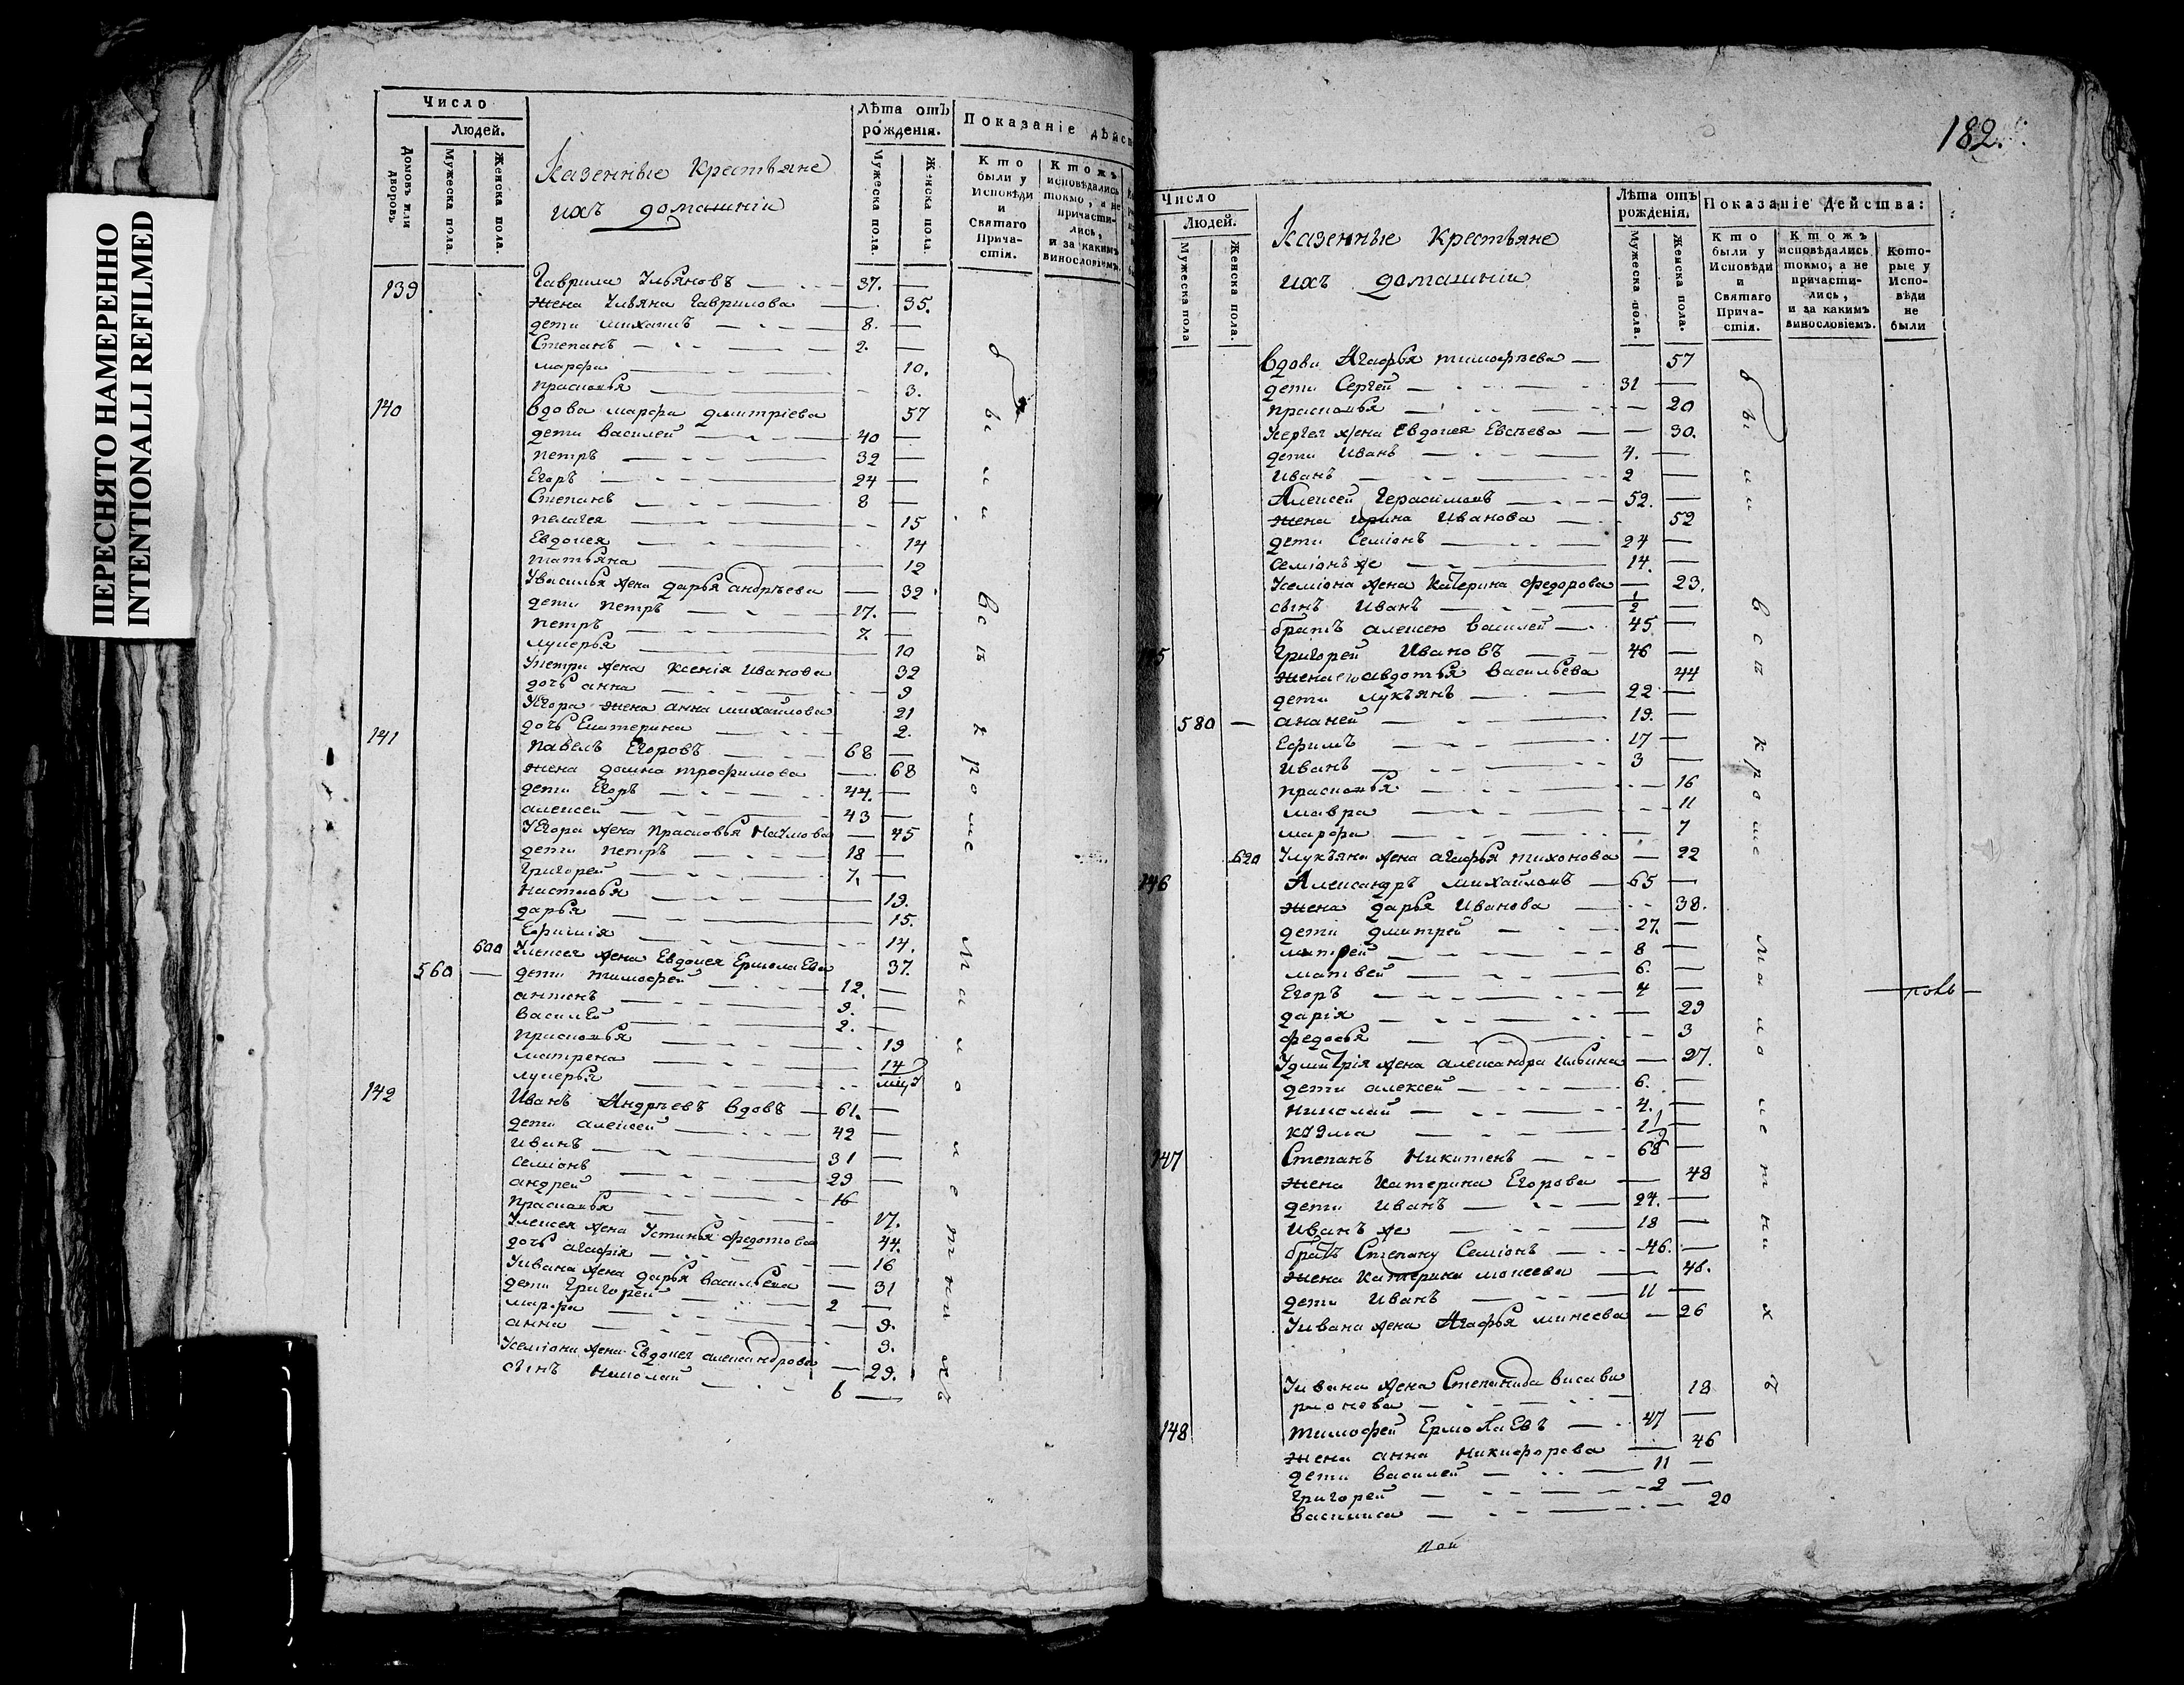 ПЕРЕСНЯТО НАМЕРЕННО
INTENTIONALLI REFILMED
Число
Людей.
Домовъ или дворовъ.
Мужеска пола.
Женска пола.
Казенныe Крестьяне
ихъ домашнiи
Лѣта отъ рожденiя.
Мужеска пола.
Женска пола.
Показанiе дѣйс
Кто были у Исповѣди и Святаго Прича-стiя.
Ктожъ исповѣдались токмо, а не причасти-лись, и за какимъ винословiемъ.
139 Гаврила Ульяновъ 37.
жена Ульяна Гаврилова 35.
дети михаилъ 8.
Степанъ 2.
марфа 10.
прасковья 3.
140 Вдова марфа дмитрiева 57
дети василей 40
петръ 32
Егоръ 24
Степанъ 8
пелагея 15
Евдокея 14
татьяна 12
Увасилья жена дарья андрѣева 32
дети петръ 17.
петръ 7.
лукерья 10
Упетра жена Ксенiя Иванова 32
дочь анна 9
УЕгора жена анна михайлова 21
дочь Екатерина 2.
141 павелъ Егоровъ 68
жена домна трофимова 68
дети Егоръ 44.
алексей 43
УЕгора жена прасковья Наумова 45
дети петръ 18
Григорей 7.
настасья 19.
дарья 15.
Ефимiя 14.
600 Улексея жена Евдокея ЕрмолаЕва 37.
560 дети тимофей 12.
антонъ 9.
василей 2.
прасковья 19
матрена 14
лукерья
142 Иванъ Андрѣевъ вдовъ 61.
дети алексей 42
иванъ 31
семiонъ 29
андрей 16
прасковья 17.
Улексея жена Устинья федотова 44.
дочь агафiя 16
Уивана жена дарья васильева 31
дети Григорей 2
марфа 9.
анна 3.
Усемiона жена Евдокея александрова 29.
сынъ николай 6
были всѣ кроме малолетнихъ
182.
Число
Людей.
Мужеска пола
Женска пола.
Казенные Крестьяне
ихъ домашнiи
Лѣта отъ рожденiя.
Мужеска пола.
Женска пола.
Показанiе Дейсшва:
Кто были у Исповѣди и Святаго Прича-стiя.
Ктожъ исповѣдались токмо, а не причасти-лись, и за какимъ винословiемъ.
Кото-рые у Испо-вѣди не были
Вдова Агафья тимофѣева 57
дети Сергей 31
прасковья 20
Усергея жена Евдокея Евсѣева 30.
дети Иванъ 4.
Иванъ 2
Алексей Герасимовъ 52.
жена ирина Иванова 52
дети Семiонъ 24
Семiонъ же 14.
Усемiона жена Катерина федорова 23.
сынъ Иванъ 1/2
братъ алексею василей 45
Григорей Ивановъ 46
жена его авдотья Васильева 44
дети лукъянъ 22
580 ананей 19.
Ефимъ 17
Иванъ 3
прасковья 16
мавра 11
марфа 7
620 Улукъяна жена агафья тихонова 22
146 Александръ михайловъ 65
жена дарья Иванова 38.
дети дмитрей 27.
8
матвей 6.
Егоръ 4
дарiя 29
федосья 3
Удмитрiя жена александра ильина 27.
дети алексей 6.
николай 4.
кузма
147 Степанъ Никитинъ 68
жена Катерина Егорова 48
дети Иванъ 24.
Иванъ же 18
братъ Степану Семiонъ 46.
жена Катерина мокеева 48.
дети Иванъ 11
Уивана жена Агафья минеева 26
Уивана жена Степанида висави
рионова 18
148 тимофей ЕрмолаЕвъ 47
жена анна Никифорова 46
дети василей 11
Григорей 2
василиса 20
были всѣ кроме малолетнихъ